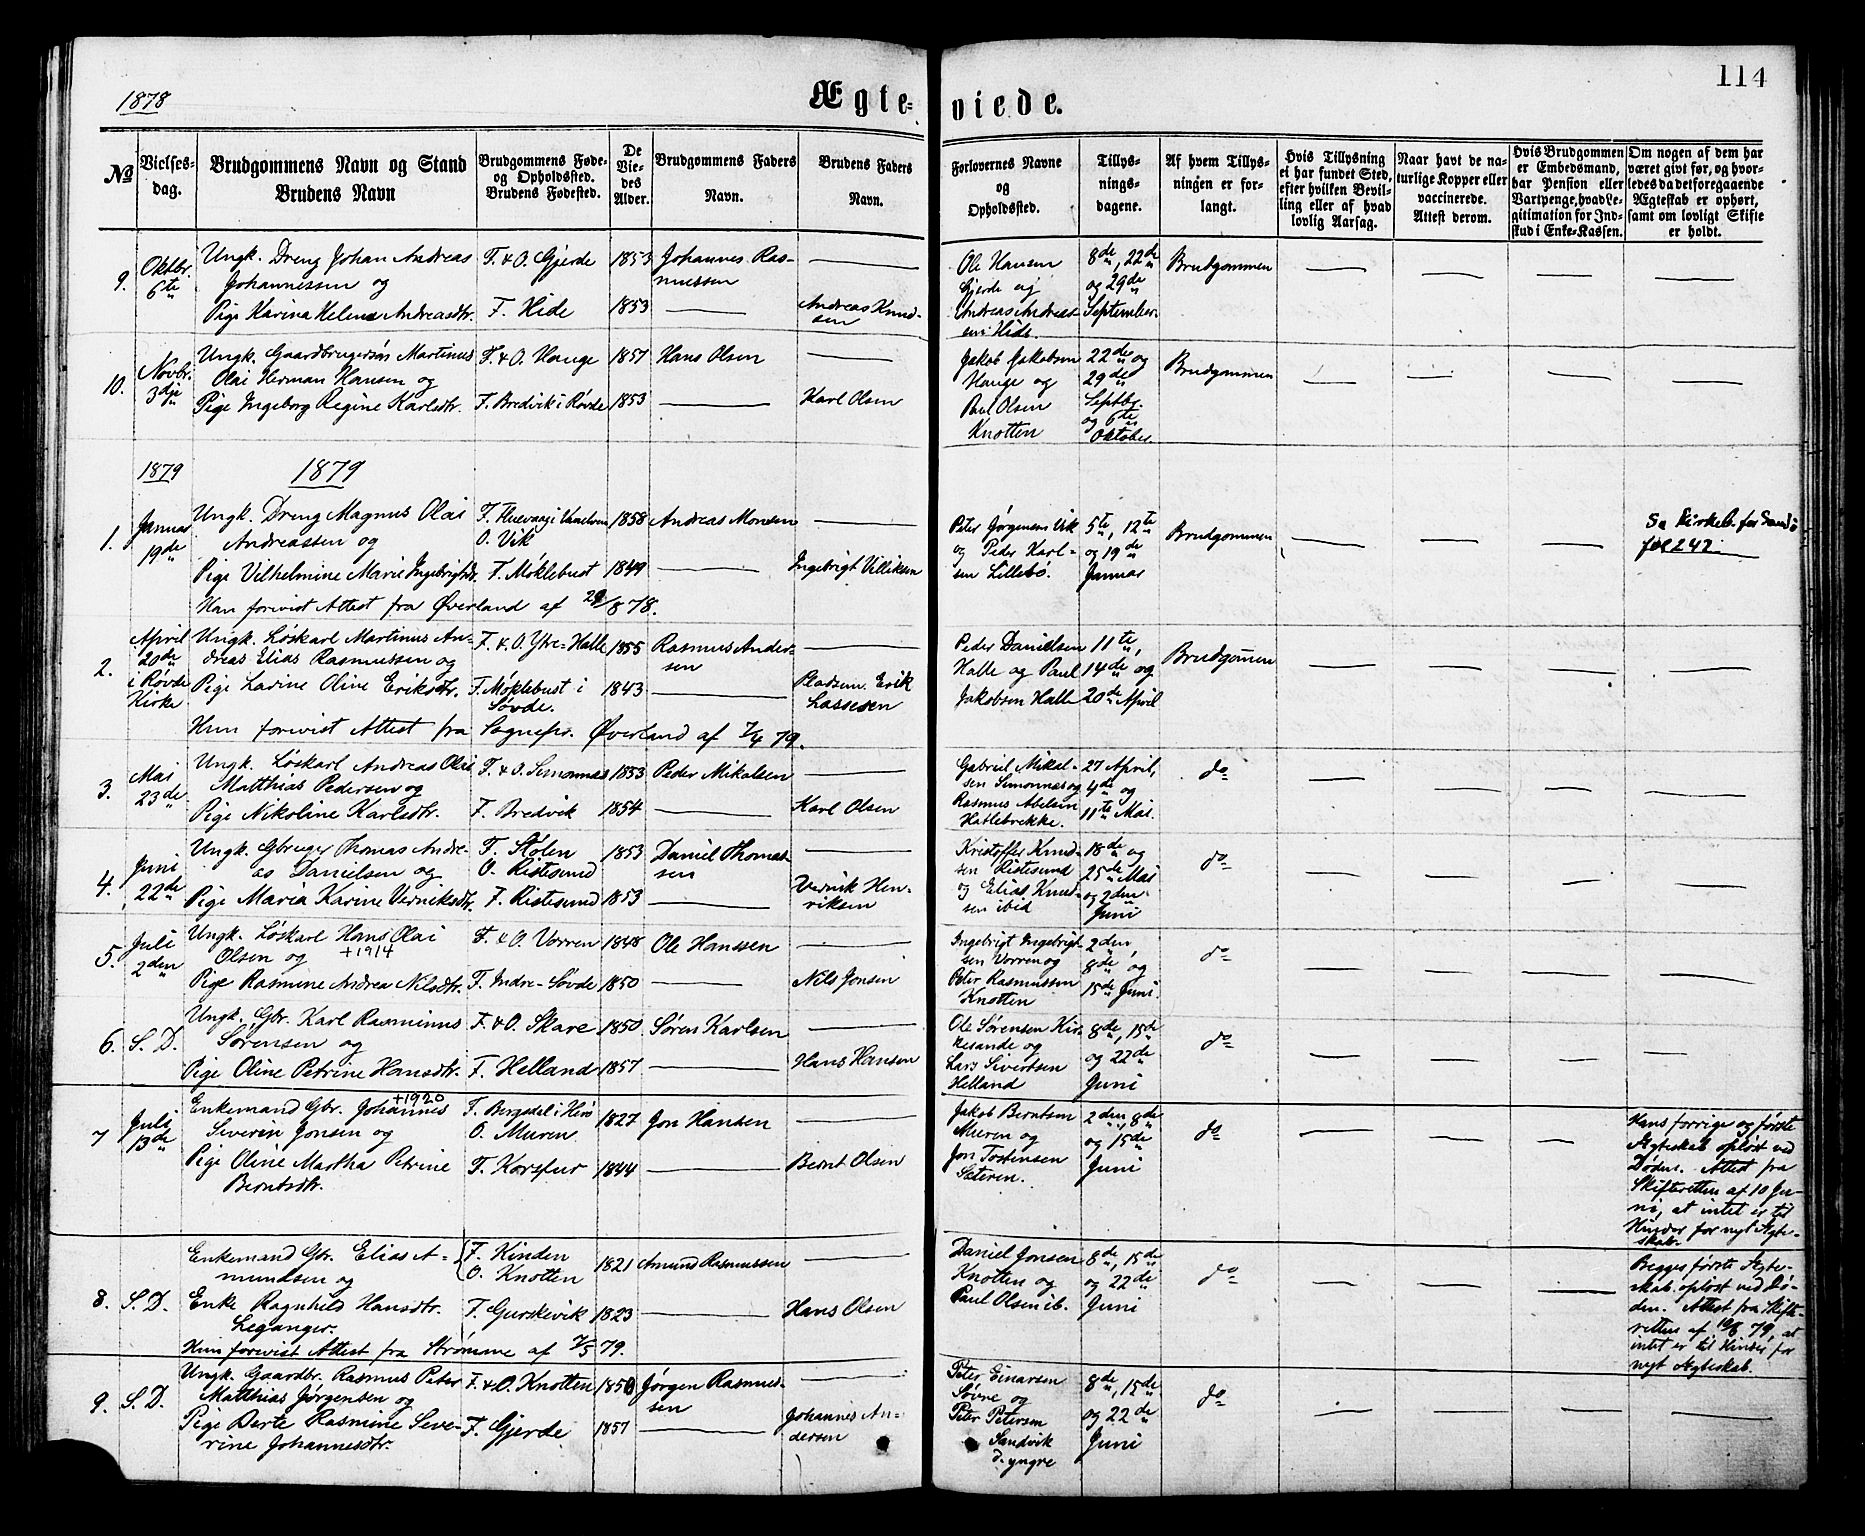 114
1878
Ægte-
viede.
No
Vielses-
dag.
Brudgommens Navn og Stand
Brudens Navn
Brudgommens Føde-
og Opholdssted.
Brudens Fødested.
De
Vie-
des
Alder.
Brudgommens Faders
Navn.
Brudens Faders
Navn.
Forlovernes Navne
og
Opholdssted.
Tillys-
nings-
dagene.
Af hvem Tillys-
ningen er for-
langt.
Hvis Tillysning
ei har fundet Sted,
efter hvilken Bevil-
ling eller af hvad
lovlig Aarsag.
Naar havt de na-
turlige Kopper eller
vaccinerede.
Attest derom.
Hvis Brudgommen
er Embedsmand,
har Pension eller
Vartpenge, hvad Le-
gitimation for Ind-
skud i Enke-Kassen.
Om nogen af dem har
været givt før, og hvor-
ledes da det foregaaende
Ægteskab er ophørt,
samt om lovligt Skifte
er holdt.
9.
Oktbr.
6te
Ungk. Dreng Johan Andreas
Johannessen og
Pige Karina Helene Andreasdtr.
F. & O. Gjerde
F. Hide
1853
1853
Johannes Ras-
mussen
Andreas Knud-
sen
Ole Hansen
Gjerde og
Andreas Andreas-
sen Hide
8de, 22de
og 29de
September.
Brudgommen
10.
Novbr.
3dje
Ungk. Gaardbrugersøn Martinus
Olai Herman Hansen og
Pige Ingeborg Regine Karlsdtr.
F. & O. Hauge
F. Bredvik i Røvde
1857
1853
Hans Olsen
Karl Olsen
Jakob Jakobsen
Hauge og
Paul Olsen
Knotten
22de og
29de
Septbr.
og 6te
Oktober.
Brudgommen
1879
1879
1.
Januar
19de
Ungk. Dreng Magnus Olai
Andreassen og
Pige Vilhelmine Marie Ingebrigtsdtr.
Han forevist Attest fra Øverland af 29/8 78.
O. Vik
F. Møklebust
1858
1849
Andreas Monsen
Ingebrigt Villiksen
Peter Jørgensen Vik
og Peder Karl-
sen Lillebø.
5te, 12te
og 19de
Januar
Brudgommen
Se Kirkeb. for Sandö
fol 242
2.
April
20de
i Røvde
Kirke
Ungk. Løskarl Martinus An-
dreas Elias Rasmussen og
Pige Larine Oline Eriksdtr.
Hun forevist Attest fra Sognepr. Øverland af 7/4 79.
F. & O. Ytre-Halle
F. Møklebust i
Søvde.
1855
1843
Rasmus Ander-
sen
Pladsm. Erik
Lassesen
Peder Danielsen
Halle og Paul
Jakobsen Halle
11te,
14de og
20de April
Brudgomen
3.
Mai
23de
Ungk. Løskarl Andreas Olai
Matthias Pedersen og
Pige Nikoline Karlsdtr.
F. & O. Simonnæs
F. Bredvik
1853
1854
Peder Mikalsen
Karl Olsen
Gabriel Mikal-
sen Simonnæs og
Rasmus Abelsen
Hatlebrekke.
27 April,
4de og
11te Mai.
do
4.
Juni
22de
Ungk. Gbruger Thomas Andre-
as Danielsen og
Pige Maria Karine Verniksdtr.
F. Stølen
O. Ristesund
F. Ristesund
1853
1853
Daniel Thomas-
sen
Vernik Hen-
riksen
Kristoffer Knud-
sen Ristesund
og Elias Knud-
sen ibid
18de og
25de Mai
og 2den
Juni
do
5.
Juli
2den
Ungk. Løskarl Hans Olai
Olsen og +1914
Pige Rasmine Andrea Nilsdtr.
F. & O. Vorren
F. Indre-Søvde
1848
1850
Ole Hanssen
Nils Jonsen
Ingebrigt Ingebrigt-
sen Vorren og
Peter Rasmussen
Knotten
2den,
8de og
15de Juni.
do
6.
S. D.
Ungk. Gbr. Karl Rasminus
Sørensen og
Pige Oline Petrine Hansdtr.
F. & O. Skare
F. Helland
1850
1857
Søren Karlsen
Hans Hansen
Ole Sørensen Kir-
kesande og
Lars Sivertsen
Helland
8de, 15de
og 22de
Juni
do
7
Juli
13de
+1920
Enkemand Gbr. Johannes
Severin Jonsen og
Pige Oline Martha Petrine
Berntsdtr.
F. Bergsdal i Herö
O. Muren
F. Korsfur
1827
1844
Jon Hansen
Bernt Olsen
Jakob Berntsen
Muren og
Jon Tostensen
Sæteren.
2den, 8de
og 15de
Juni
do
Hans forrige og første
Ægteskab opløst ved
Døden. Attest fra
Skifteretten af 10 Ju-
ni, at intet er til
Hinder for nyt Ægte-
skab.
8.
S. D.
Enkemand Gbr. Elias A-
mundsen og
Enke Ragnhild Hansdtr.
Leganger.
Hun forevist Attest fra Strømme af 7/5 79.
F. Kinden
O. Knotten
F. Gurskevik
1821
1823
Amund Rasmussen
Hans Olsen
Daniel Jonsen
Knotten og
Paul Olsen ib.
8de, 15de
og 22de
Juni
do
Begges første Ægte-
skab opløst ved Dø-
den. Attest fra Skifte-
retten af 10/6 79, at
intet er til Hinder for
nyt Ægteskab.
9.
S. D.
Ungk. Gaardbr. Rasmus Peter
Matthias Jørgensen og
Pige Berte Rasmine Seve-
rine Johannesdtr.
F. & O. Knotten
F. Gjerde
1850
1857
Jørgen Rasmus-
sen
Johannes An-
dersen
Peter Einarsen
Søvne og
Peter Petersen
Sandvik
d. yngre
8de, 15de
og 22de
Juni
do